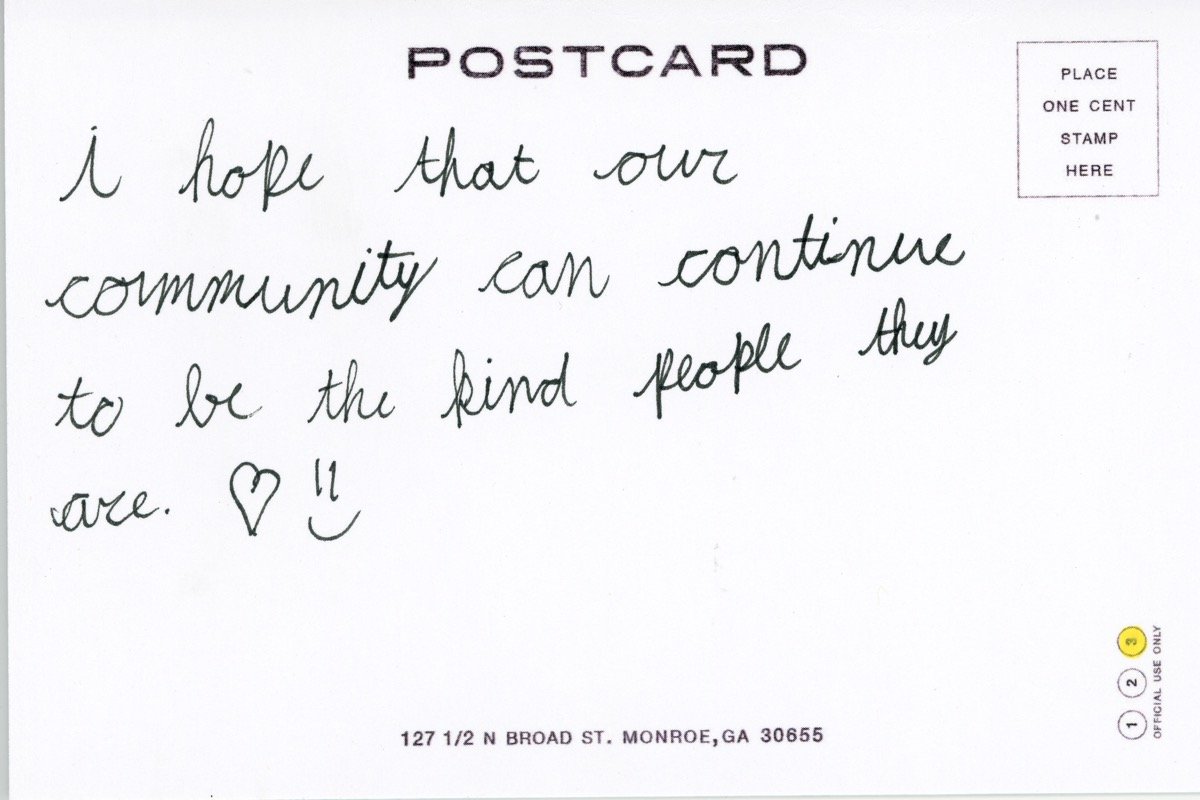 POSTCARD
PLACE
ONE CENT
STAMP
HERE
i hope that our
community can continue
to be the kind people they
are. ♡
127 1/2 N BROAD ST. MONROE, GA 30655
1 2 3
OFFICIAL USE ONLY